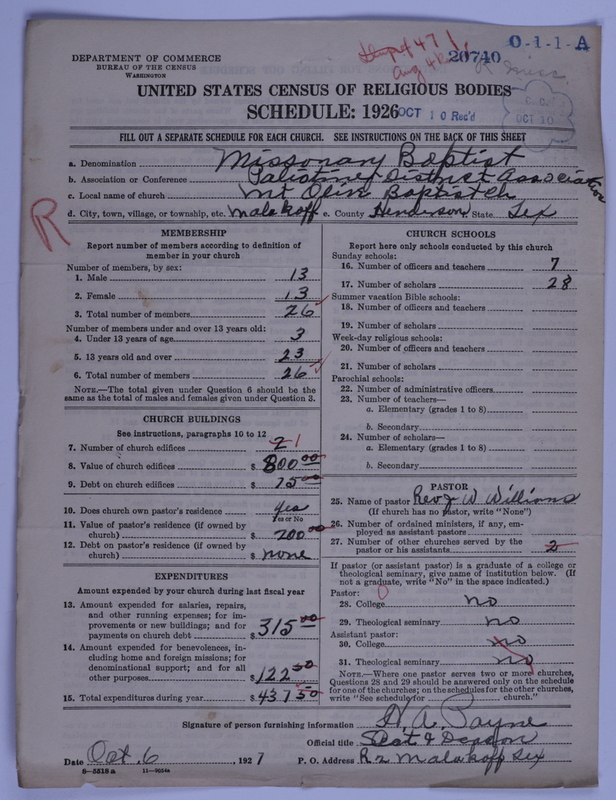 DEPARTMENT OF COMMERCE
BUREAU OF THE CENSUS
WASHINGTON
20740
O-1-1-A
UNITED STATES CENSUS OF RELIGIOUS BODIES
SCHEDULE: 1926
OCT 10 Rec'd
OCT 10
FILL OUT A SEPARATE SCHEDULE FOR EACH CHURCH. SEE INSTRUCTIONS ON THE BACK OF THIS SHEET
a. Denomination Missonary Baptist
b. Association or Conference District Association
c. Local name of church Mt Olive Baptist Ch
d. City, town, village, or township, etc. Malakoff e. County Henderson State Tex
R
MEMBERSHIP
Report number of members according to definition of
member in your church
Number of members, by sex:
1. Male 13
2. Female 13
3. Total number of members 26
Number of members under and over 13 years old:
4. Under 13 years of age 3
5. 13 years old and over 23
6. Total number of members 26
NOTE.—The total given under Question 6 should be the
same as the total of males and females given under Question 3.
CHURCH BUILDINGS
See instructions, paragraphs 10 to 12
7. Number of church edifices 2 1
8. Value of church edifices $ 800 00
9. Debt on church edifices $ 75 00
10. Does church own pastor's residence yes
Yes or No
11. Value of pastor's residence (if owned by
church) $ 200 00
12. Debt on pastor's residence (if owned by
church) $ none
EXPENDITURES
Amount expended by your church during last fiscal year
13. Amount expended for salaries, repairs,
and other running expenses; for im-
provements or new buildings; and for
payments on church debt $ 315 00
14. Amount expended for benevolences, in-
cluding home and foreign missions; for
denominational support; and for all
other purposes $ 122 50
15. Total expenditures during year $ 437 50
CHURCH SCHOOLS
Report here only schools conducted by this church
Sunday schools:
16. Number of officers and teachers 7
17. Number of scholars 28
Summer vacation Bible schools:
18. Number of officers and teachers
19. Number of scholars
Week-day religious schools:
20. Number of officers and teachers
21. Number of scholars
Parochial schools:
22. Number of administrative officers
23. Number of teachers—
a. Elementary (grades 1 to 8)
b. Secondary
24. Number of scholars—
a. Elementary (grades 1 to 8)
b. Secondary
PASTOR
25. Name of pastor Rev J W Williams
(If church has no pastor, write "None")
26. Number of ordained ministers, if any, em-
ployed as assistant pastors
27. Number of other churches served by the
pastor or his assistants 2
If pastor (or assistant pastor) is a graduate of a college or
theological seminary, give name of institution below. (If
not a graduate, write "No" in the space indicated.)
Pastor:
28. College no
29. Theological seminary no
Assistant pastor:
30. College no
31. Theological seminary no
NOTE.—Where one pastor serves two or more churches,
Questions 28 and 29 should be answered only on the schedule
for one of the churches; on the schedules for the other churches,
write "See schedule for church."
Signature of person furnishing information H. A. Payne
Official title & Deacon
Date Oct. 6, 1927 P. O. Address R 2 Malakoff Tex
8-5518a 11-9024a